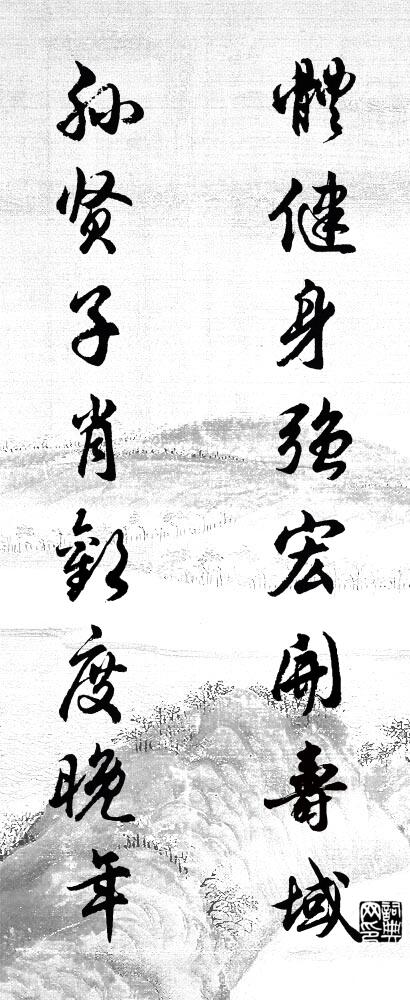 體健身强宏開壽域
孙贤子肖歡度晚年
詞典网印